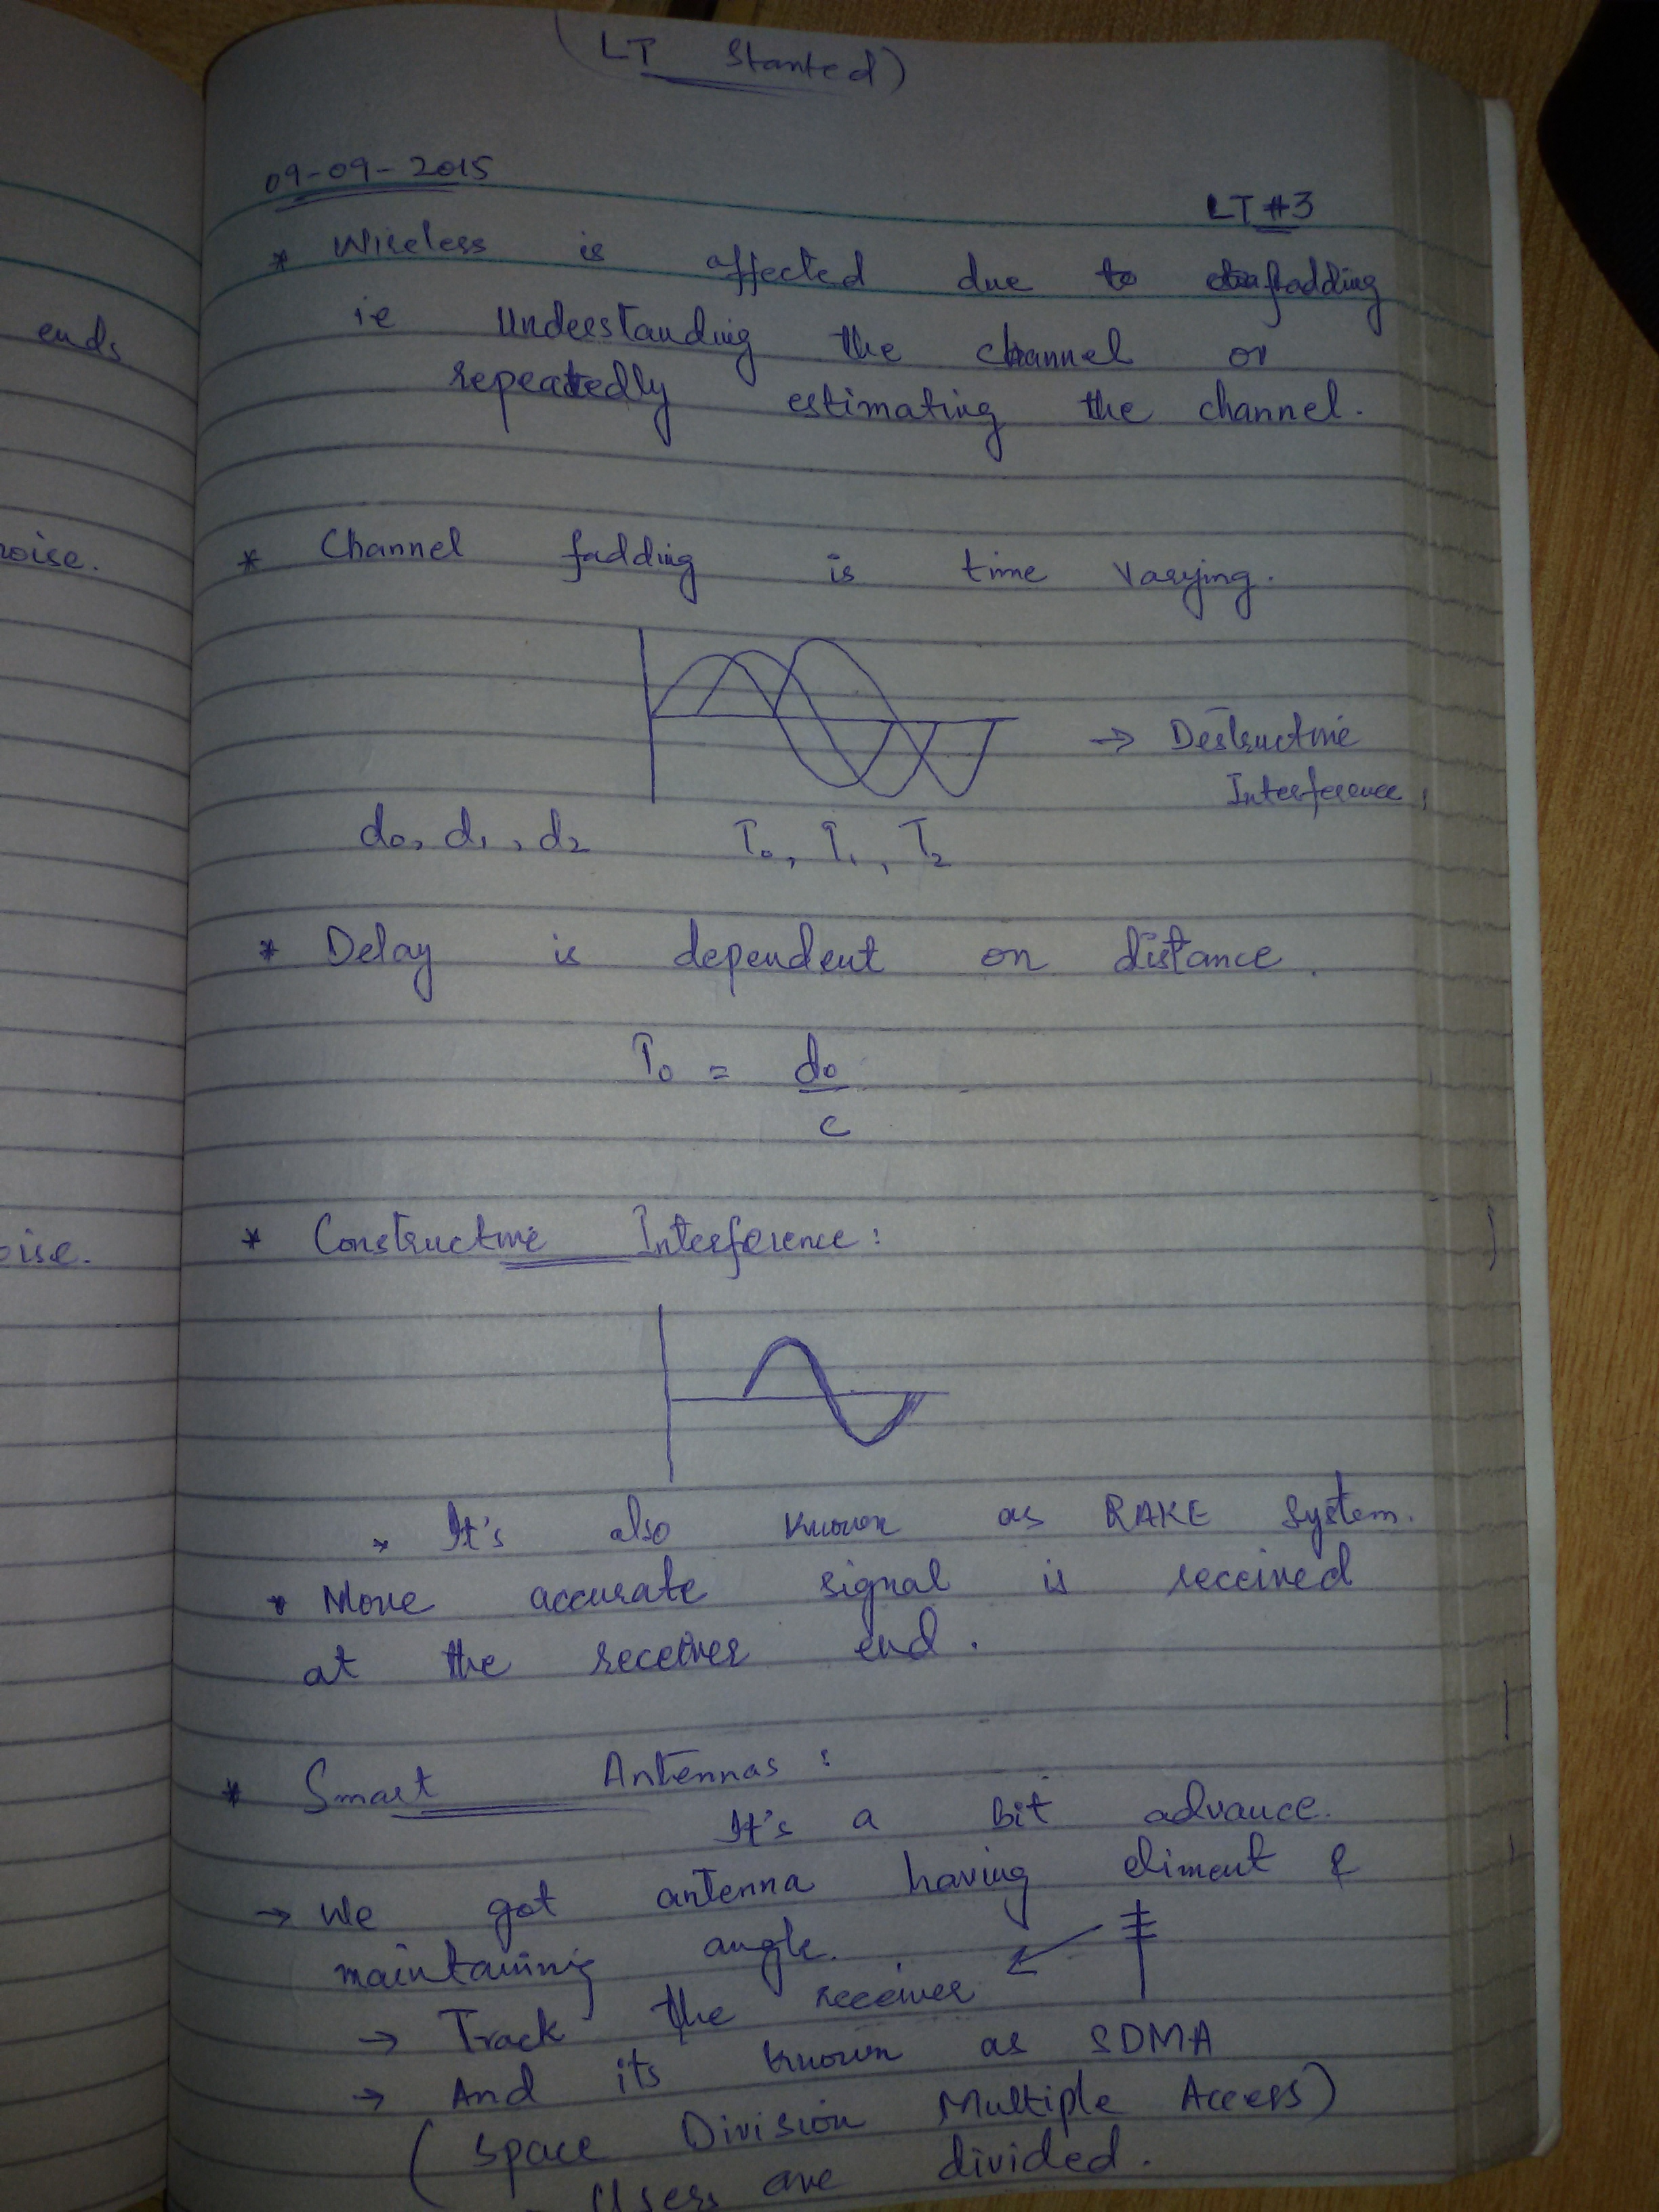 (LT Started)
09-09-2015
LT #3
* Wireless is affected due to fadding
ie Understanding the channel or
repeatedly estimating the channel.
ends
* Channel fadding is time varying.
oise.
→ Destructive
Interference
d0, d1, d2 T0, T1, T2
* Delay is dependent on distance.
T0 = d0
c
* Constructive Interference:
oise.
* It's also known as RAKE System.
* More accurate signal is received
at the receiver end.
* Smart Antennas :
It's a bit advance.
→ We got antenna having eliment &
maintaining angle.
→ Track the receiver
→ And its known as SDMA
(Space Division Multiple Access)
- Users are divided.